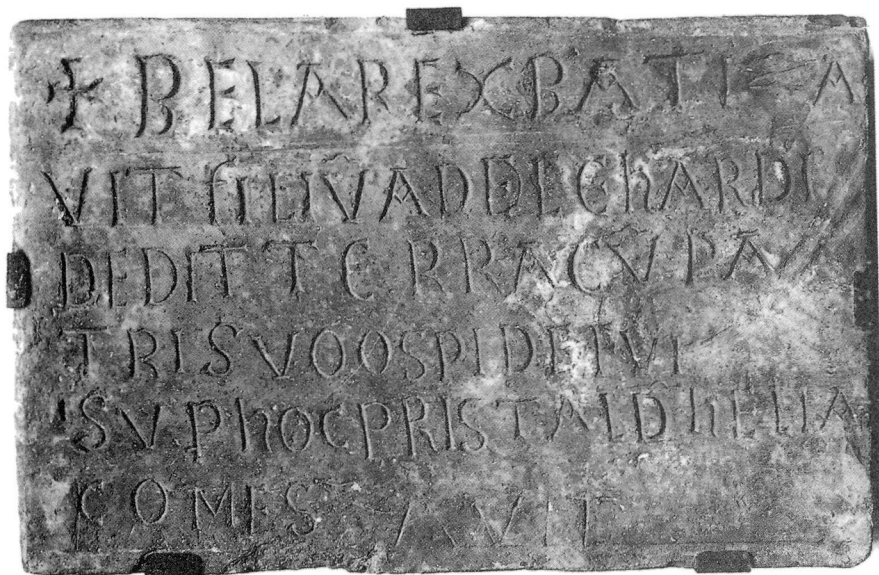 ✝ BELA REX BATIZA
VIT FILIV̄ ADELChARDI
DEDIT TERRA CV̄ PA
TRI SVO OSPI DE PVI
SVP hOC PRISTALD̄ hELIA
COMES AVIT